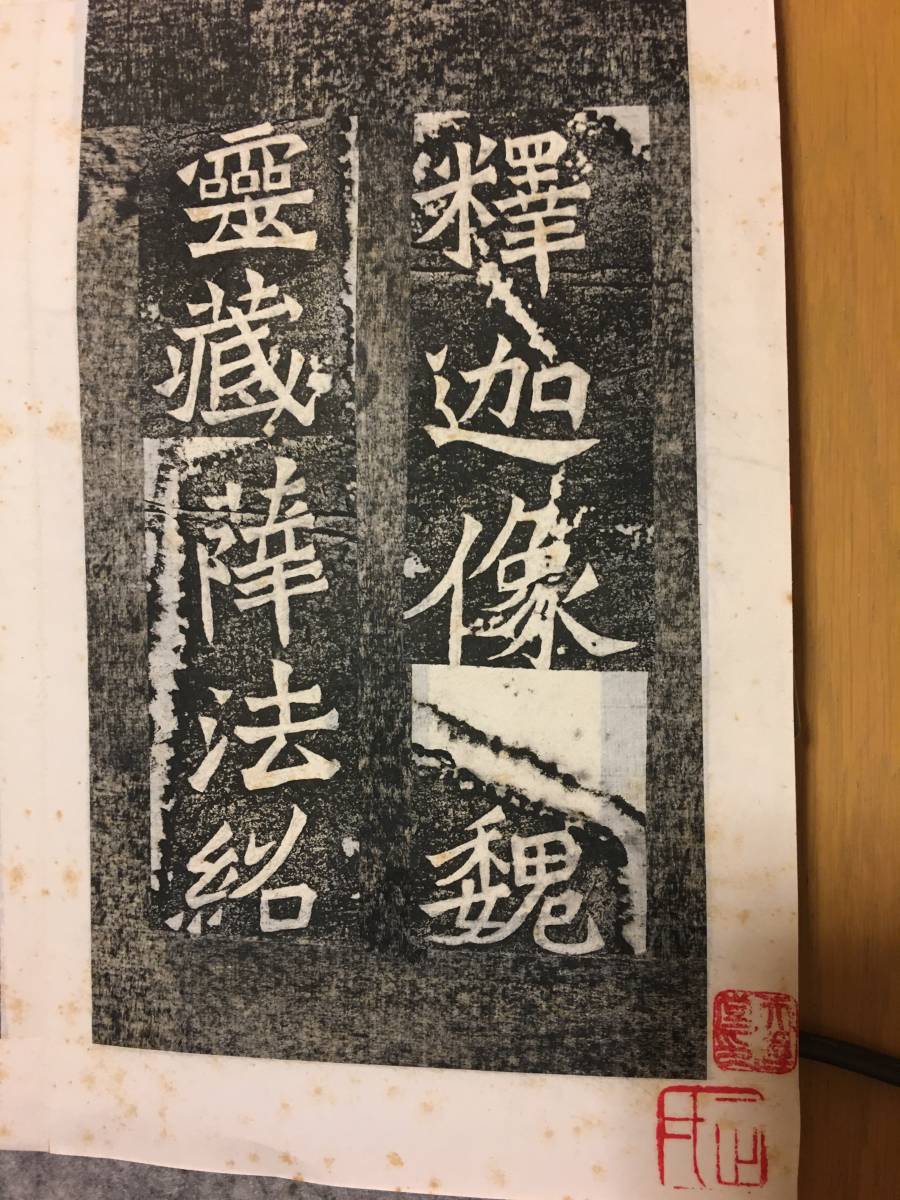 釋迦像魏
靈藏薛法紹